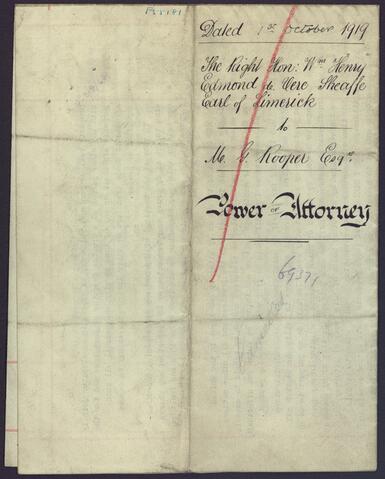 Dated 1st October 1919
The Right Hon: Wm Henry
Edmond de Vere Sheaffe
Earl of Limerick
to
M. G. Rooper Esqre
Power of Attorney
6937